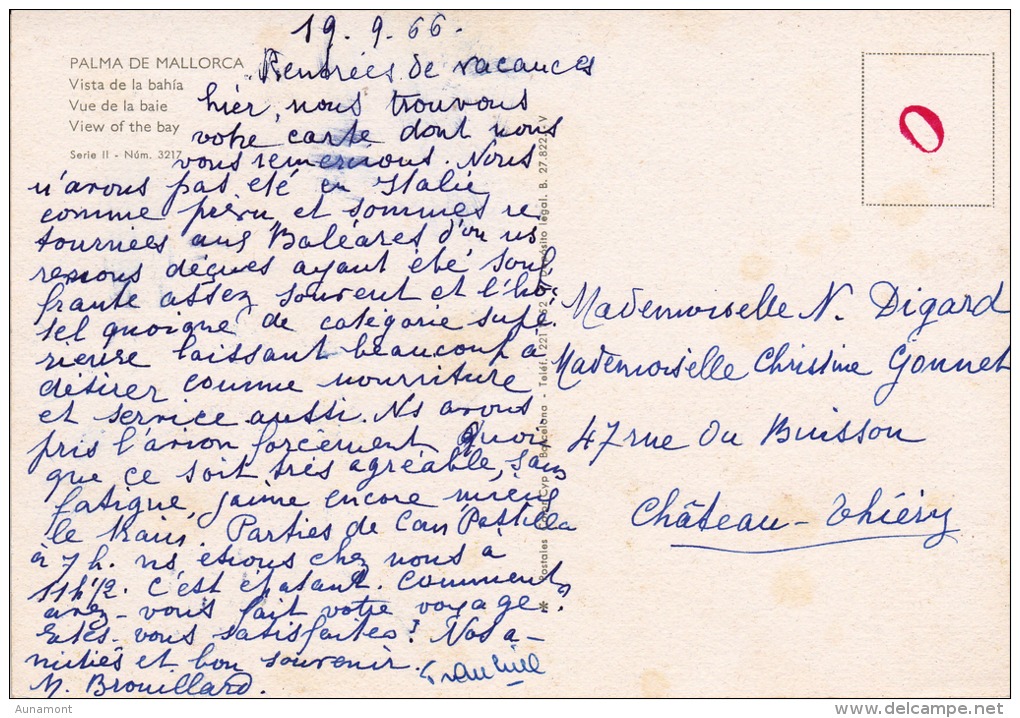 19.9.66.
PALMA DE MALLORCA
Vista de la bahía
Vue de la baie
View of the bay
Serie II - Núm. 3217
Rentrées de vacances
hier, nous trouvons
votre carte dont nous
vous remercions. Nous
n'avons pas été en Italie
comme prévu et sommes re
tournées aux Baléares d'où ns
revenons déçues ayant été souf
frante assez souvent et l'hô-
tel quoique de catégorie supé.
rieure laissant beaucoup à
désirer comme nourriture
et service aussi. Ns avons
pris l'avion forcément Quoi
que ce soit très agréable, sans
fatigue, j'aime encore mieux
le train. Parties de Can Pastilla
à 7 h. ns étions chez nous à
11h1/2. C'est épatant. Comment
avez-vous fait votre voyage.
Etes-vous satisfaites? Nos a-
mitiés et bon souvenir.
M. Brouillard.
Mademoiselle N. Digard
Mademoiselle Christine Gonnet
47 rue du Buisson
Château-Thiéry
0
Aunamont
www.delcampe.net